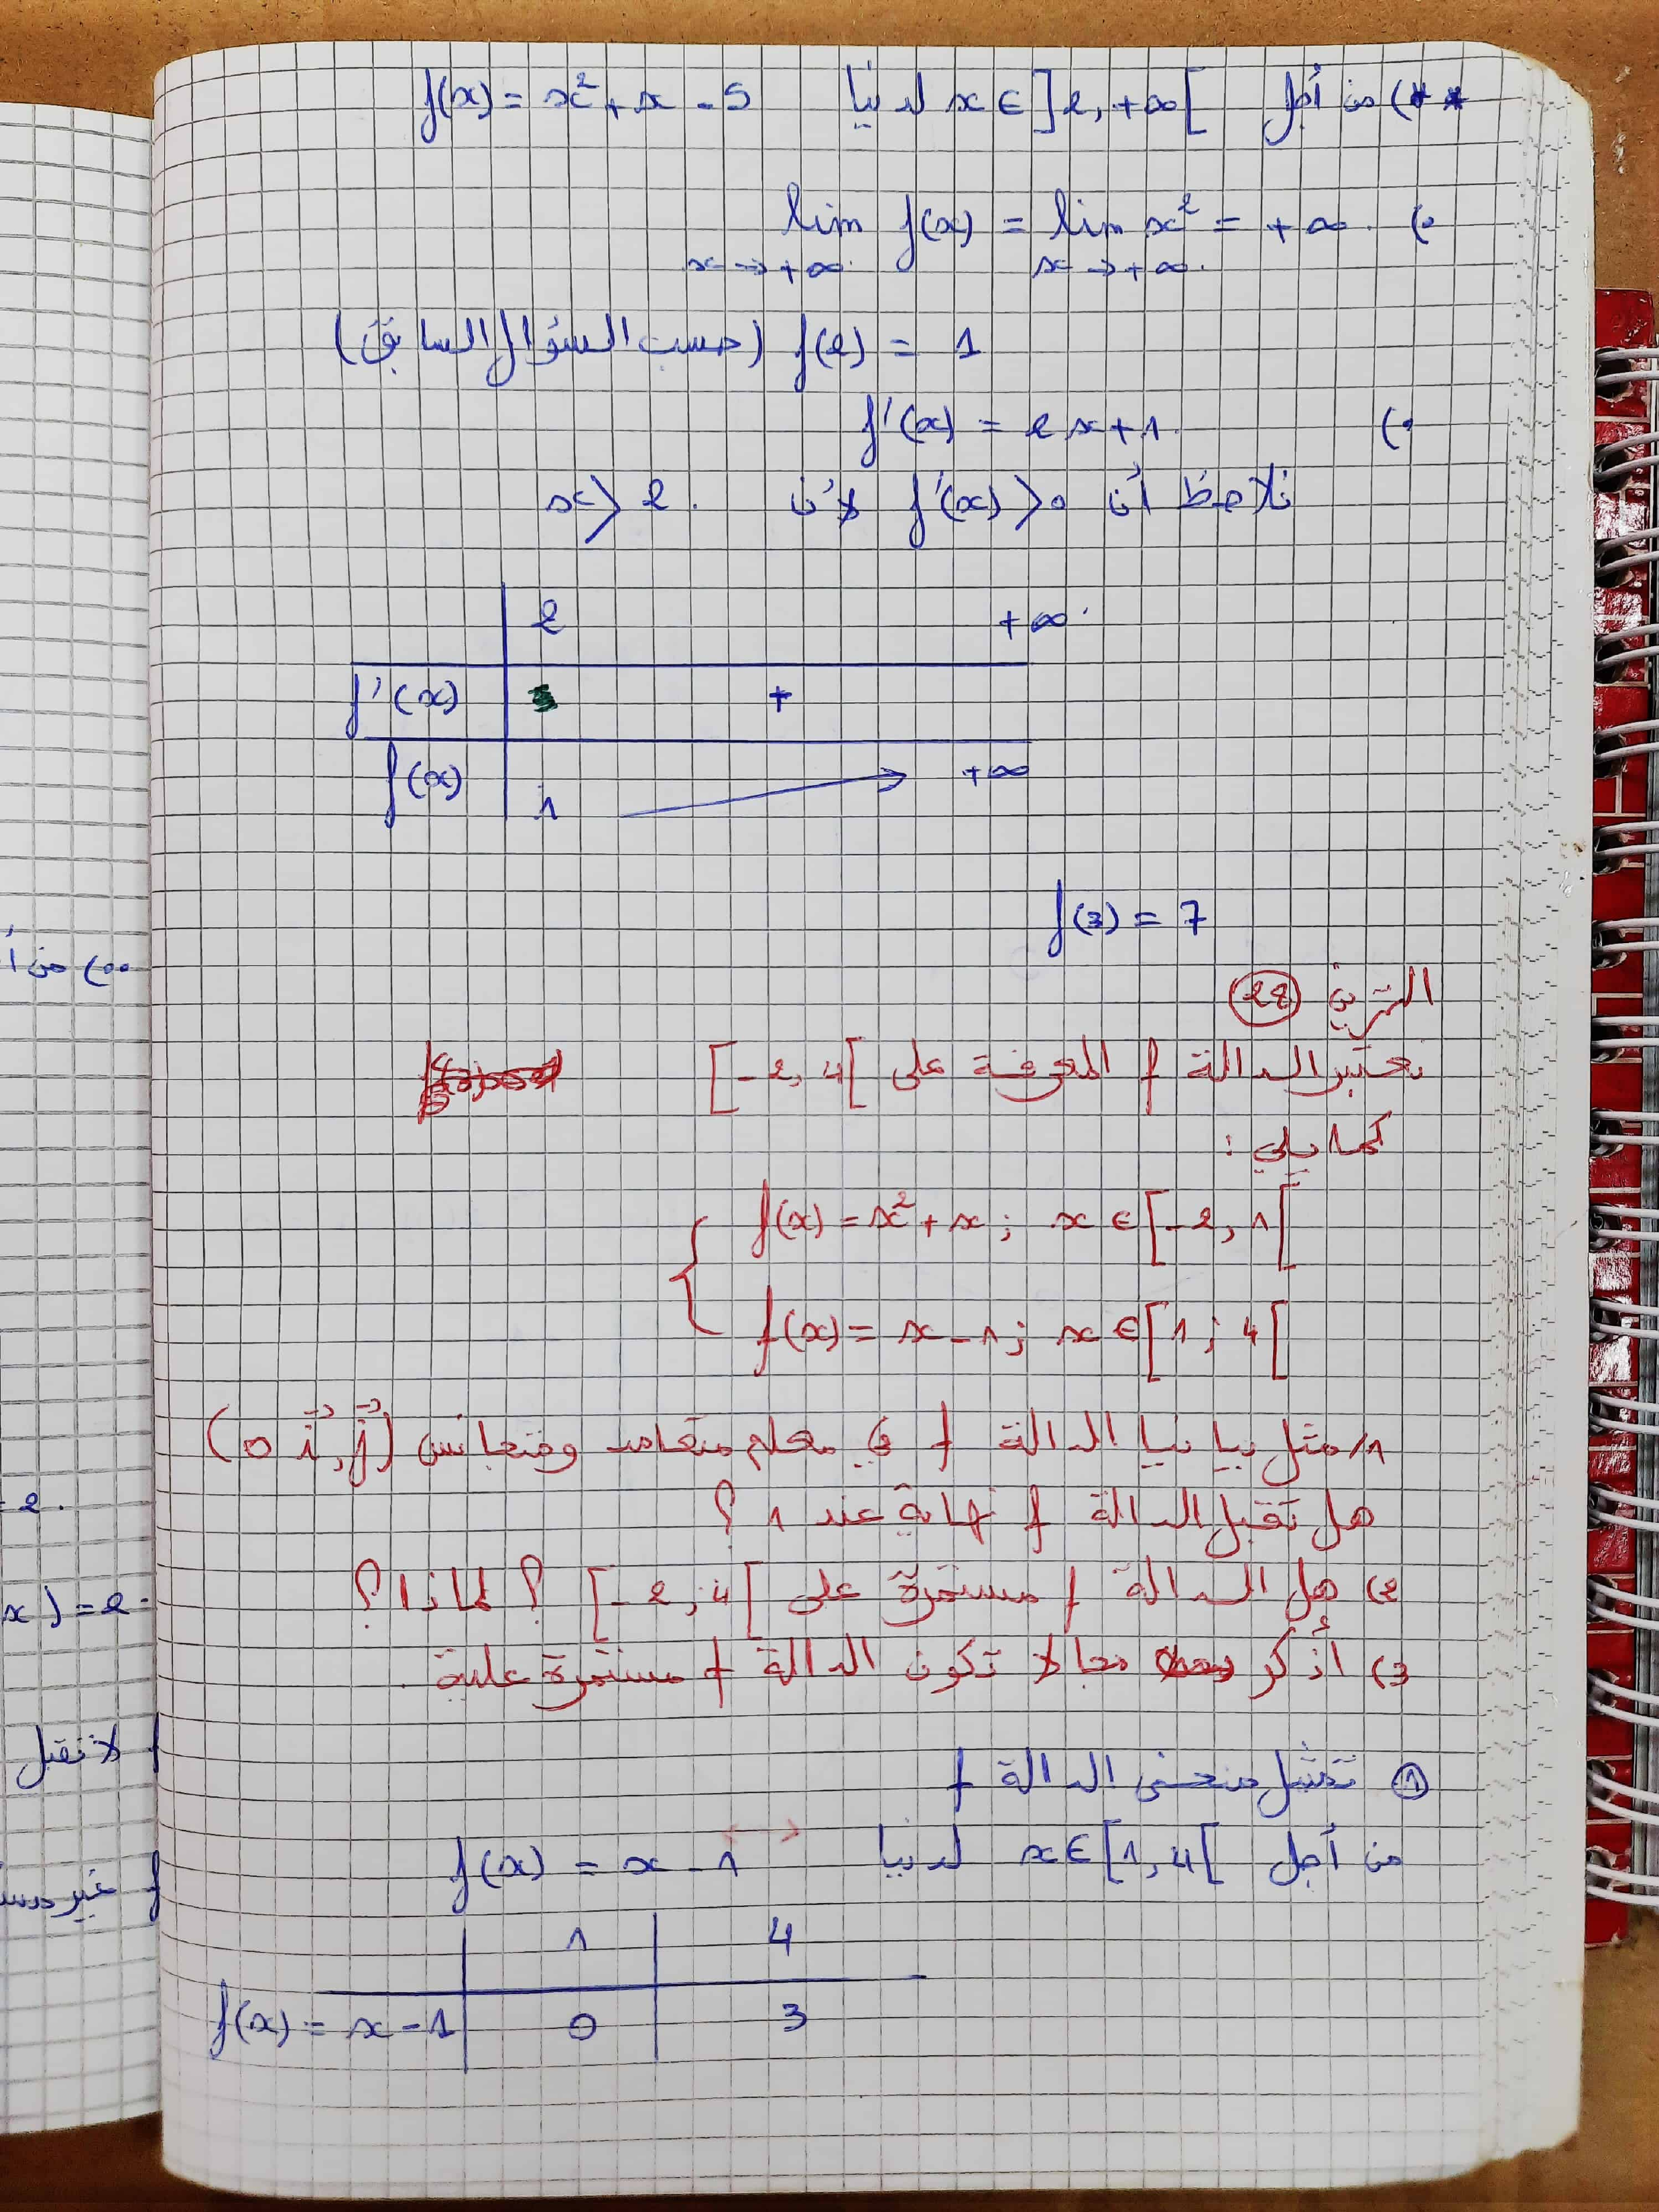 **) من أجل x ∈ ]2, +∞[ لدينا f(x) = x² + x - 5
•) lim f(x) = lim x² = +∞.
x→+∞. x→+∞.
f(2) = 1 (حسب السؤال السابق)
•) f'(x) = 2x+1.
نلاحظ أن f'(x) > 0 لأن x > 2.
2 +∞
f'(x) +
f(x) 1 +∞
f(3) = 7
التمرين 28
نعتبر الدالة f المعرفة على [-2, 4[
كما يلي :
f(x) = x² + x ; x ∈ [-2, 1[
f(x) = x - 1 ; x ∈ [1 ; 4[
1/ مثل بيانيا الدالة f في معلم متعامد ومتجانس (o i⃗, j⃗)
هل تقبل الدالة f نهاية عند 1 ؟
2) هل الدالة f مستمرة على [-2 ; 4[ ؟ لماذا ؟
3) أذكر مجالا تكون الدالة f مستمرة علية .
① تمثيل منحنى الدالة f
من أجل x ∈ [1, 4[ لدينا f(x) = x - 1
1 4
f(x) = x - 1 0 3
••) من أ
= 2.
x) = 2.
f لا تقبل
f غير مست